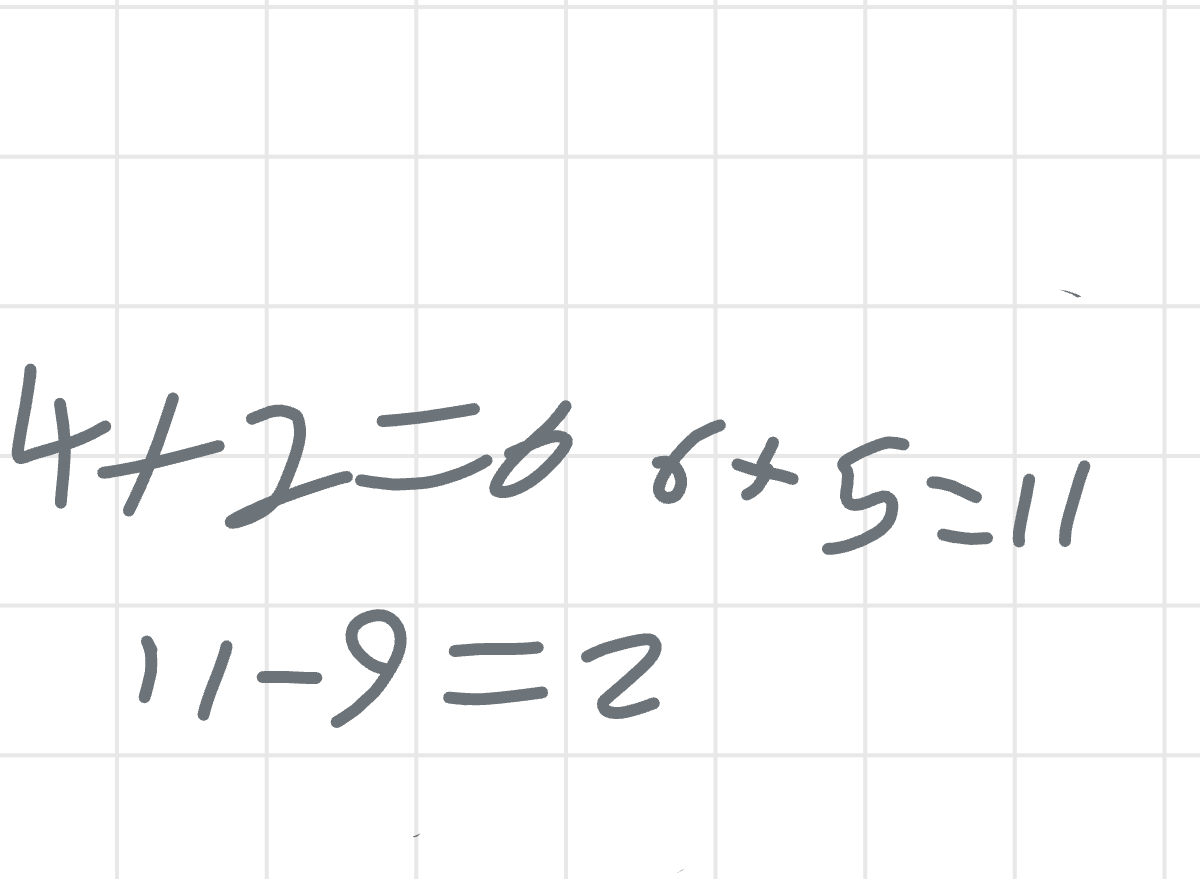 4+2=6 6+5=11
11-9=2